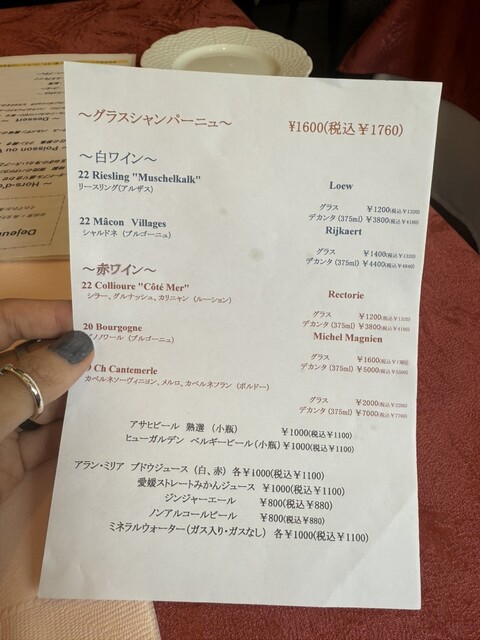 ～グラスシャンパーニュ～ ¥1600(税込￥1760)
～白ワイン～
22 Riesling "Muschelkalk" Loew
リースリング(アルザス)
グラス ￥1200(税込￥1320)
デカンタ (375ml) ￥3800(税込￥4180)
22 Mâcon Villages Rijkaert
シャルドネ（ブルゴーニュ）
グラス ￥1400
デカンタ (375ml) ￥4400(税込￥4840)
～赤ワイン～
22 Collioure "Côté Mer" Rectorie
シラー、グルナッシュ、カリニャン（ルーション）
グラス ￥1200(税込￥1320)
デカンタ (375ml) ￥3800(税込￥4180)
20 Bourgogne Michel Magnien
ノワール（ブルゴーニュ）
グラス ￥1600
デカンタ (375ml) ￥5000(税込￥5500)
Ch Cantemerle
カベルネソーヴィニヨン、メルロ、カベルネフラン（ボルドー）
グラス ￥2000(税込￥2200)
デカンタ (375ml) ￥7000
アサヒビール 熟選（小瓶） ￥1000(税込￥1100)
ヒューガルデン ベルギービール(小瓶)￥1000(税込￥1100)
アラン・ミリア ブドウジュース（白、赤）各￥1000(税込￥1100)
愛媛ストレートみかんジュース ￥1000(税込￥1100)
ジンジャーエール ￥800(税込￥880)
ノンアルコールビール ￥800(税込￥880)
ミネラルウォーター(ガス入り・ガスなし) 各￥1000(税込￥1100)
Dessert
Poisson ou
Hors-d'
Dejeu